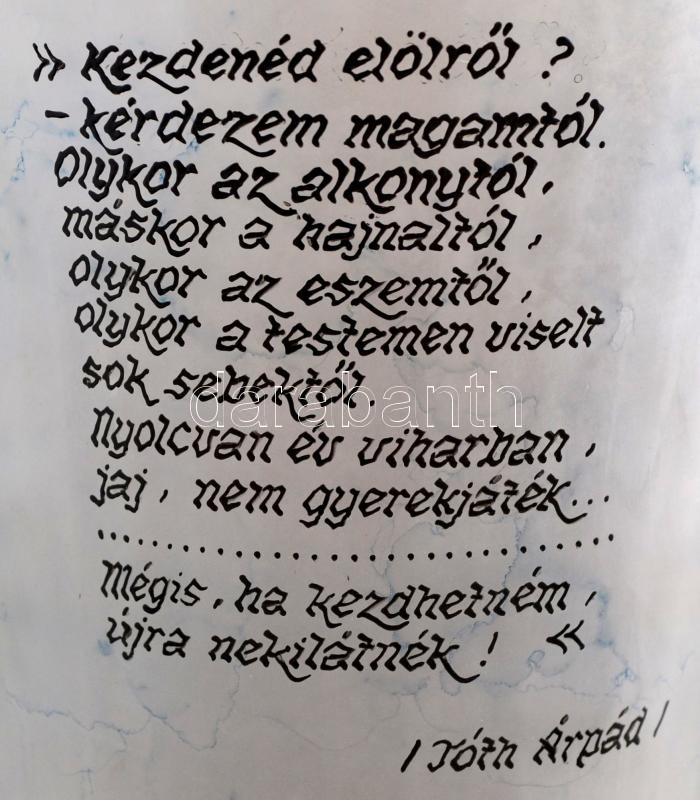 » Kezdenéd elölről ?
- kérdezem magamtól.
Olykor az alkonytól,
máskor a hajnaltól,
olykor az eszemtől,
olykor a testemen viselt
sok sebektől.
darabanth
Nyolcvan év viharban,
jaj, nem gyerekjáték...
.................................
Mégis, ha kezdhetném,
újra nekilátnék! «
/ Tóth Árpád /